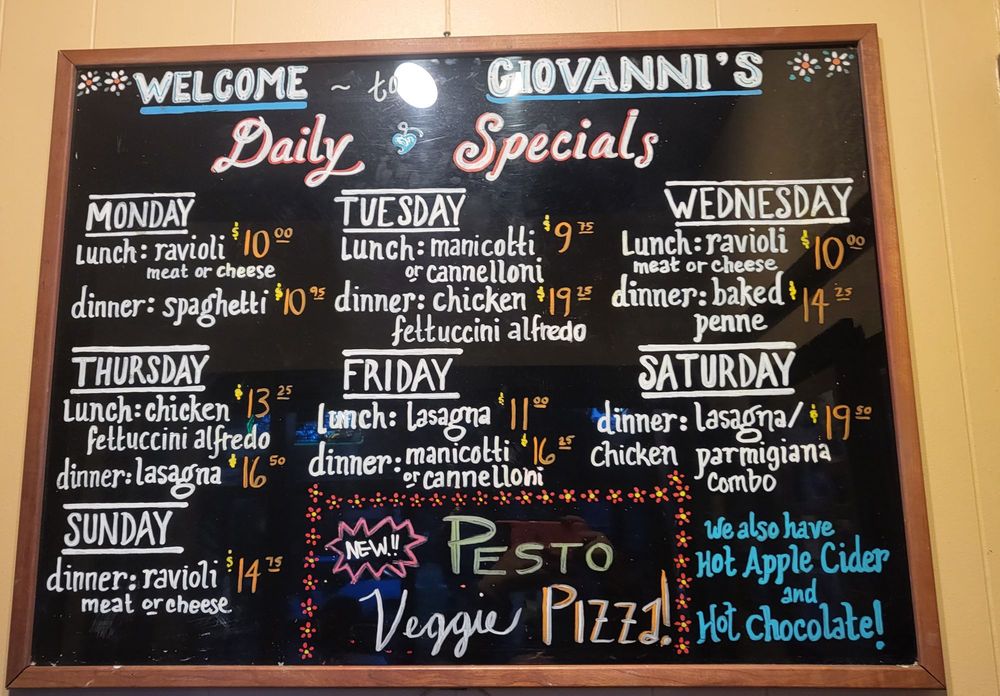 WELCOME ~ to GIOVANNI'S
Daily Specials
MONDAY
Lunch: ravioli $10.00
meat or cheese
dinner: spaghetti $10.95
TUESDAY
Lunch: manicotti $9.75
or cannelloni
dinner: chicken $19.25
fettuccini alfredo
WEDNESDAY
Lunch: ravioli $10.00
meat or cheese
dinner: baked $14.25
penne
THURSDAY
Lunch: chicken $13.25
fettuccini alfredo
dinner: lasagna $16.50
FRIDAY
Lunch: lasagna $11.00
dinner: manicotti $16.25
or cannelloni
SATURDAY
dinner: lasagna/ $19.50
chicken parmigiana
combo
SUNDAY
dinner: ravioli $14.75
meat or cheese
NEW!!
PESTO
Veggie PIZZA!
We also have
Hot Apple Cider
and
Hot Chocolate!